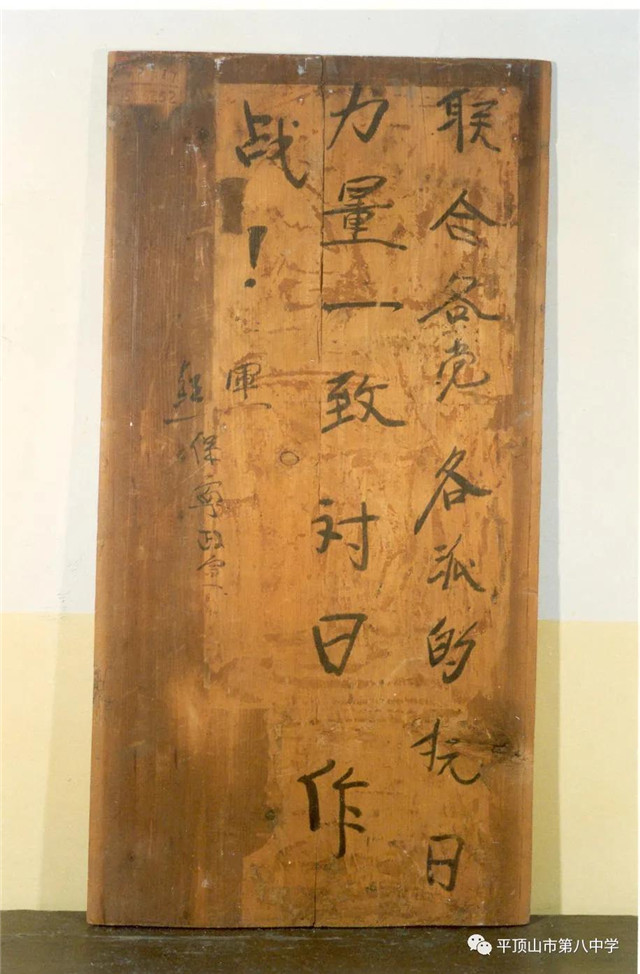 联合各党各派的抗日
力量一致对日作
战！
軍
保安政治
平顶山市第八中学